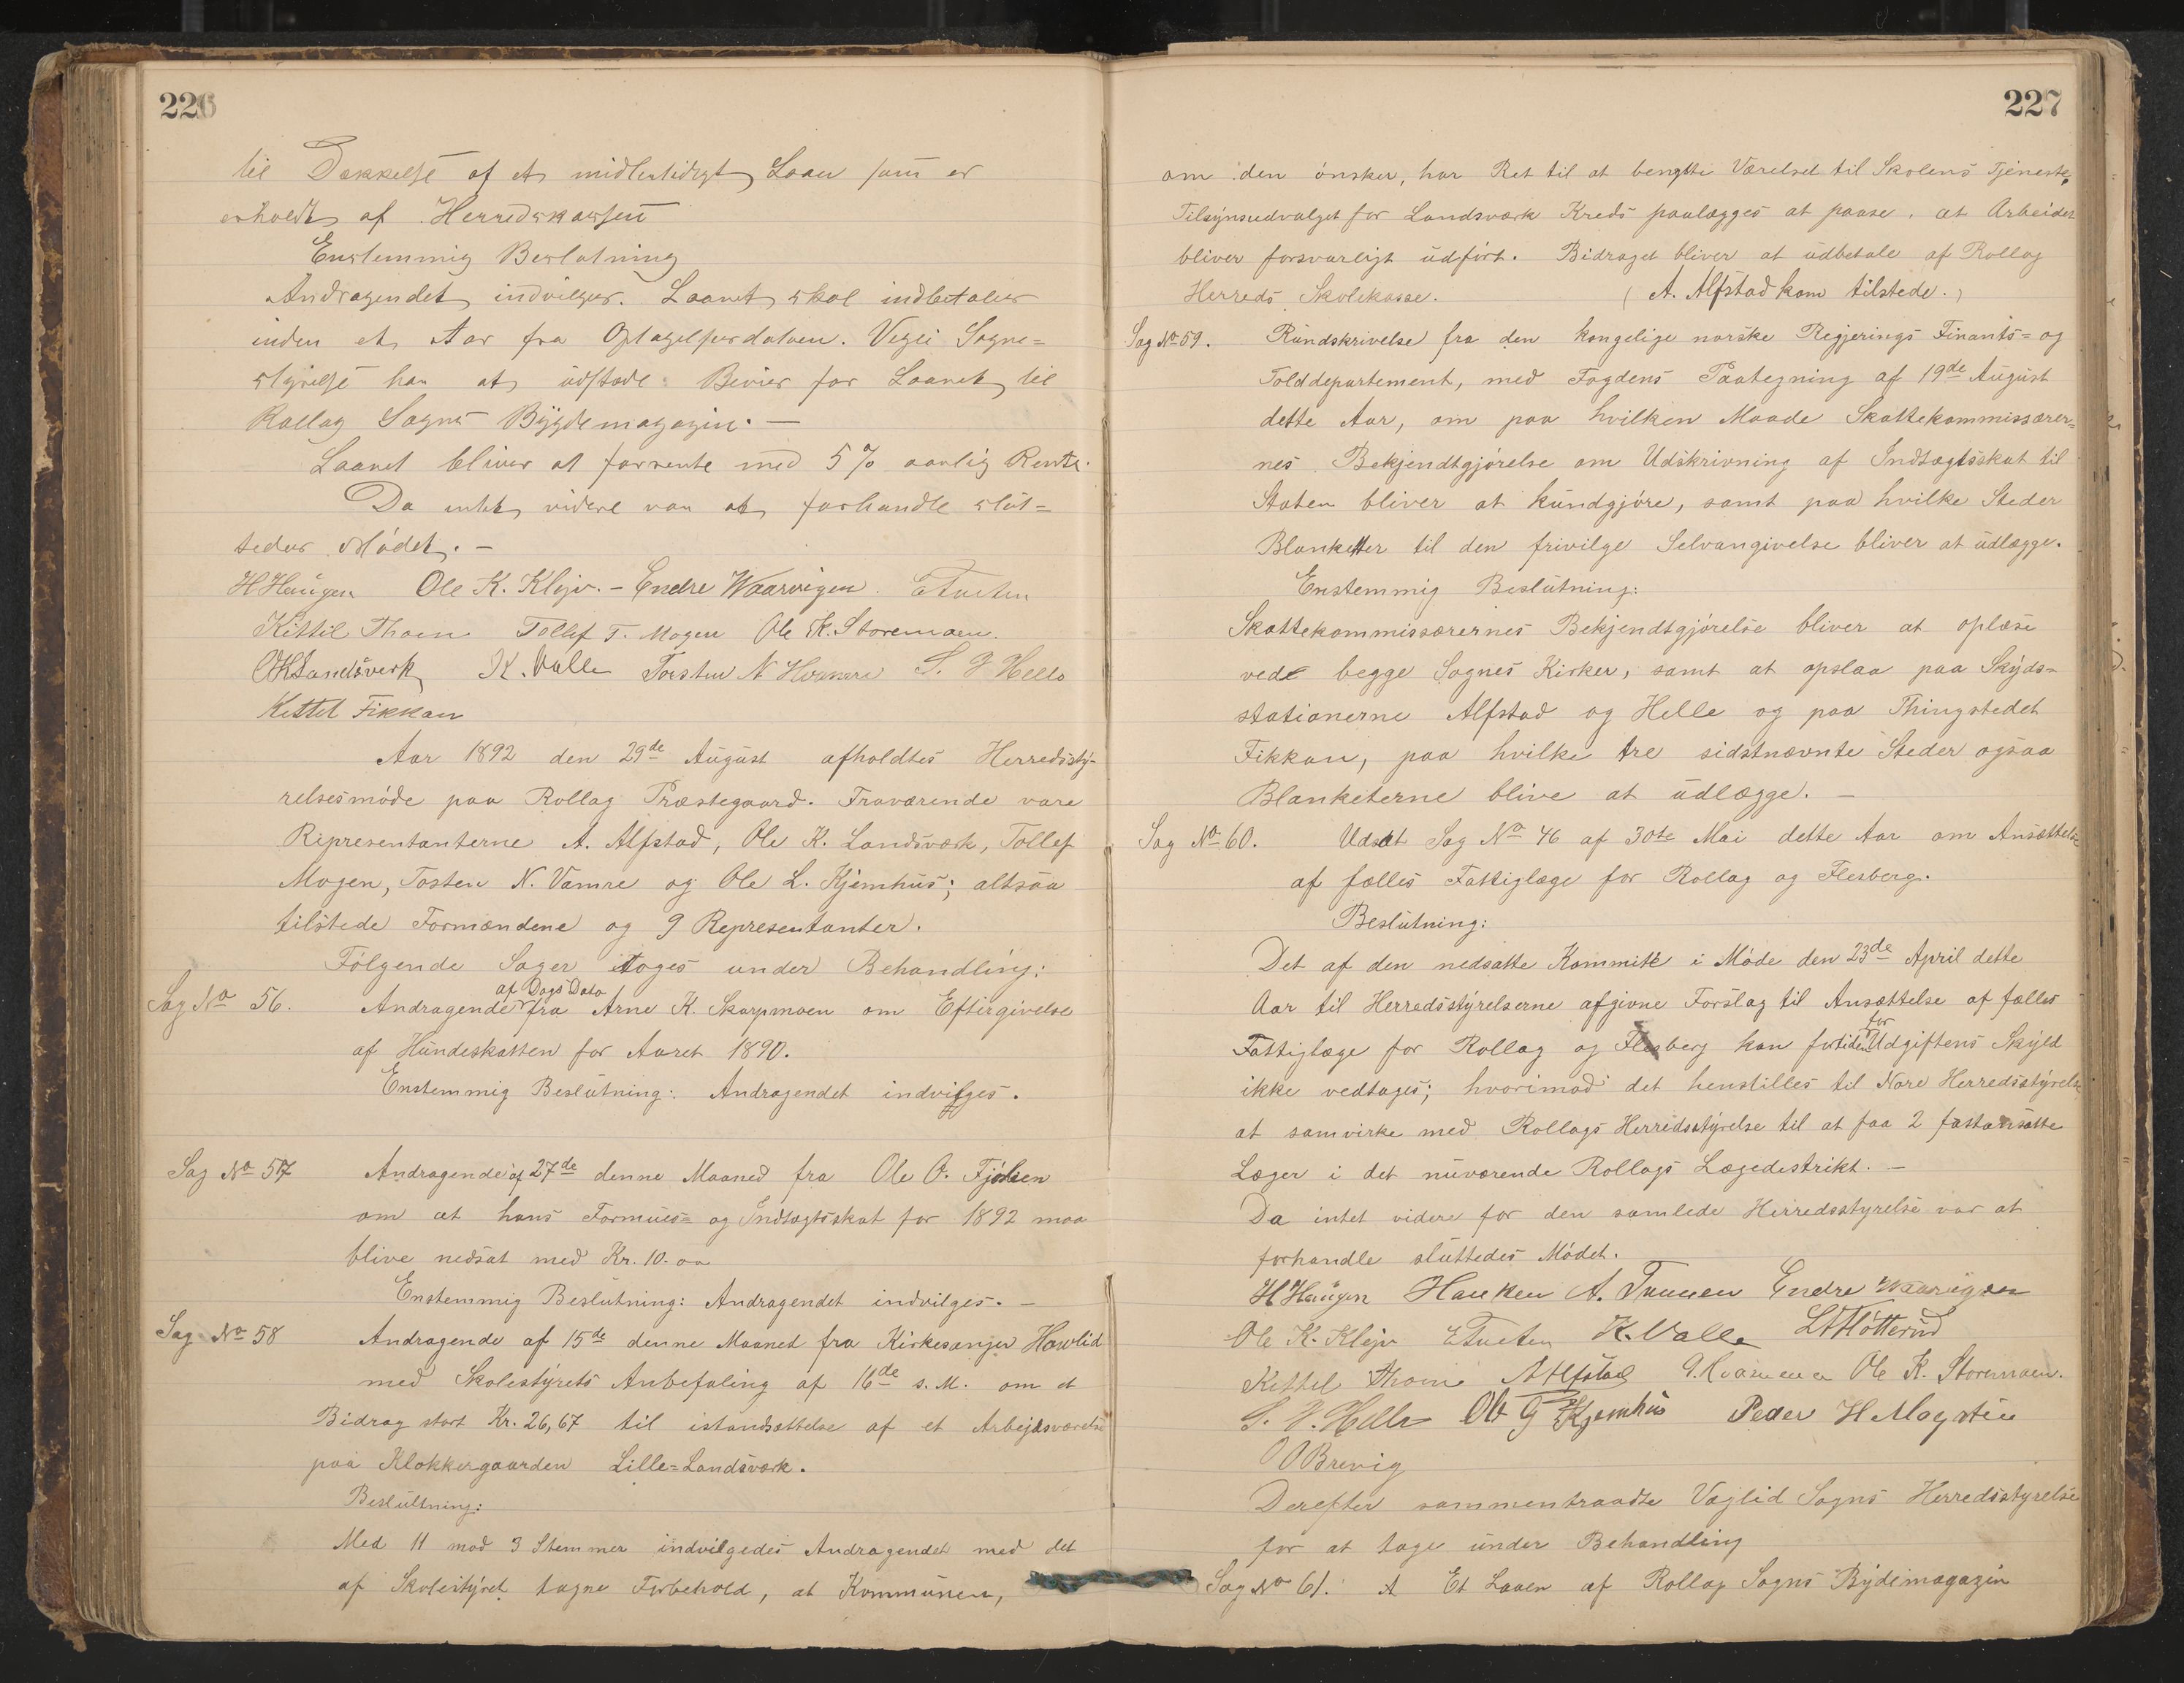 226
til Dækkelse af et midlertidigt Laan som er
erholdt af Herredskassen
Enstemmig Beslutning
Andragendet indvilges. Laanet skal indbetales
inden et Aar fra Optagelsesdatoen. Vegli Sogne=
styrelse har at udstæde Bevis for Laanet til
Rollag Sogns Bygdemagazin. —
Laanet bliver at forrente med 5 % aarlig Rente.
Da intet videre var at forhandle slut=
tedes Mødet. —
H Haugen Ole K. Klejv. – Endre Waarvigen. E Tveten
Kittil Thoen Tollef T. Mogen Ole K. Storemoen.
OK Landsverk K. Valle Torsten N S. G Helle
Kettel Fikkan
Aar 1892 den 29de August afholdtes Herredsty-
relsesmøde paa Rollag Præstegaard. Fraværende vare
Representanterne A. Alfstad, Ole K. Landsværk, Tollef
Mogen, Tosten N. Vamre og Ole L. Kjemhus; altsaa
tilstede Formændene og 9 Representanter.
Følgende Sager toges under Behandling:
af Dags Dato
Sag No 56. Andragende fra Arne K. Skarpmoen om Eftergivelse
af Hundeskatten for Aaret 1890.
Enstemmig Beslutning: Andragendet indvilges.
Sag No 57 Andragende af 27de denne Maaned fra Ole O.
om at hans Formues= og Indtægtsskat for 1892 maa
blive nedsat med Kr. 10.00
Enstemmig Beslutning: Andragendet indvilges. —
Sag No 58 Andragende af 15de denne Maanet fra Kirkesanger Howlid
med Skolestyrets Anbefaling af 16de s. M. om et
Bidrag stort Kr. 26,67 til istandsættelse af et Arbejdsværelse
paa Klokkergaarden Lille=Landsværk.
Beslutning:
Med 11 mod 3 Stemmer indvilgedes Andragendet med det
af Skolestyret tagne Forbehold, at Kommunen,
227
om den ønsker, har Ret til at benytte Værelset til Skolens Tjeneste.
Tilsynsudvalget for Landsværk Kreds paalægges at paase, at Arbeidet
bliver forsvarligt udført. Bidraget bliver at udbetale af Rollag
Herreds Skolekasse. (A. Alfstad kom tilstede.)
Sag No 59. Rundskrivelse fra den kongelige norske Regjerings Finants= og
Tolddepartement, med Fogdens Paategning af 19de August
dette Aar, om paa hvilken Maade Skattekommissærer=
nes Bekjendtgjørelse om Udskrivning af Indtægtsskat til
Staten bliver at kundgjøre, samt paa hvilke Steder
Blanketter til den frivilge Selvangivelse bliver at udlægge.
Enstemmig Beslutning:
Skattekommissærernes Bekjendtgjørelse bliver at oplæse
ved begge Sognes Kirker, samt at opslaa paa Skyds=
stationerne Alfstad og Helle og paa Thingstedet
Fikkan, paa hvilke tre sidstnævnte Steder ogsaa
Blanketerne blive at udlægge. —
Sag No 60. Udsat Sag No 46 af 30te Mai dette Aar om Ansættelse
af fælles Fattiglæge for Rollag og Flesberg.
Beslutning:
Det af den nedsatte Kommité i Møde den 23de April dette
Aar til Herredsstyrelserne afgivne Forslag til Ansættelse af fælles
Fattiglæge for Rollag og Flesberg kan fortiden for Udgiftens Skyld
ikke vedtages; hvorimod det henstilles til Nore Herredsstyrelse
at samvirke med Rollags Herredsstyrelse til at faa 2 fastansatte
Læger i det nuværende Rollags Lægedistrikt. —
Da intet videre for den samlede Herredsstyrelse var at
forhandle sluttedes Mødet.
H Haugen Hauken A. Traaen Endre Waarvigen
Ole K. Klejv E Tveten K. Valle
Kittel Thoen A Alfstad Ole K. Storemoen.
S. G. Helle Ole G Kjemhus Peder H Møgstein
O O Brevig
Derefter sammentraadte Væglid Sogns Herredsstyrelse
for at tage under Behandling
Sag No 61. A Et Laaen af Rollag Sogns Bydemagazin